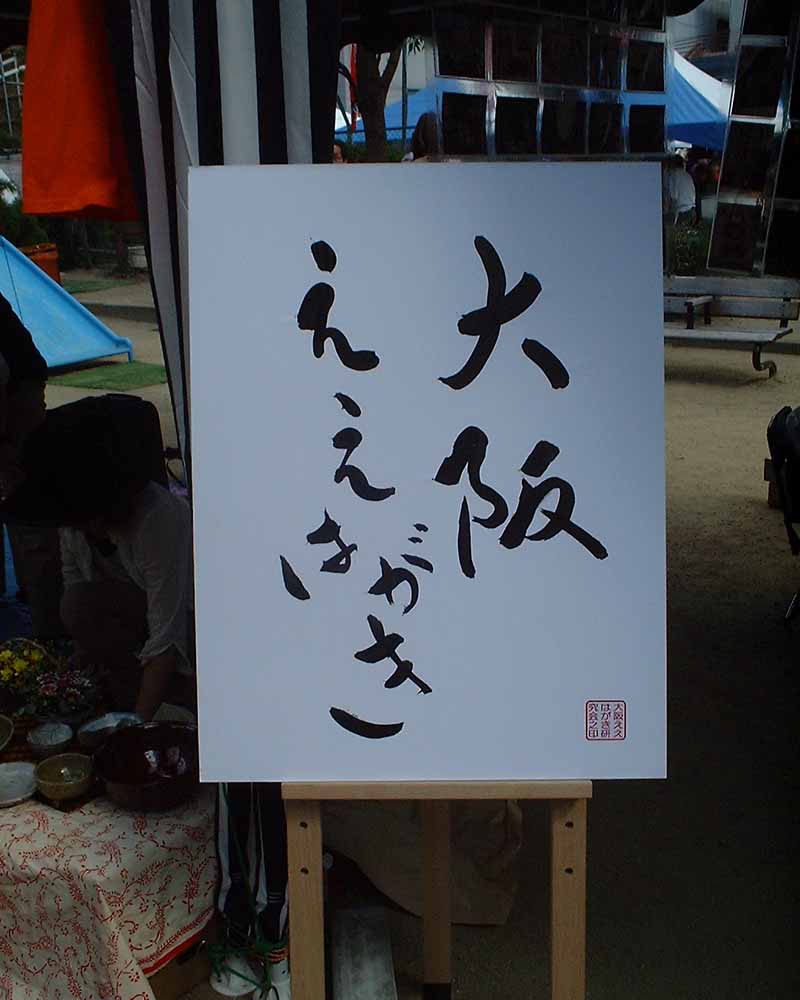 大阪
ええはがき
大阪ええ
はがき研
究会之印